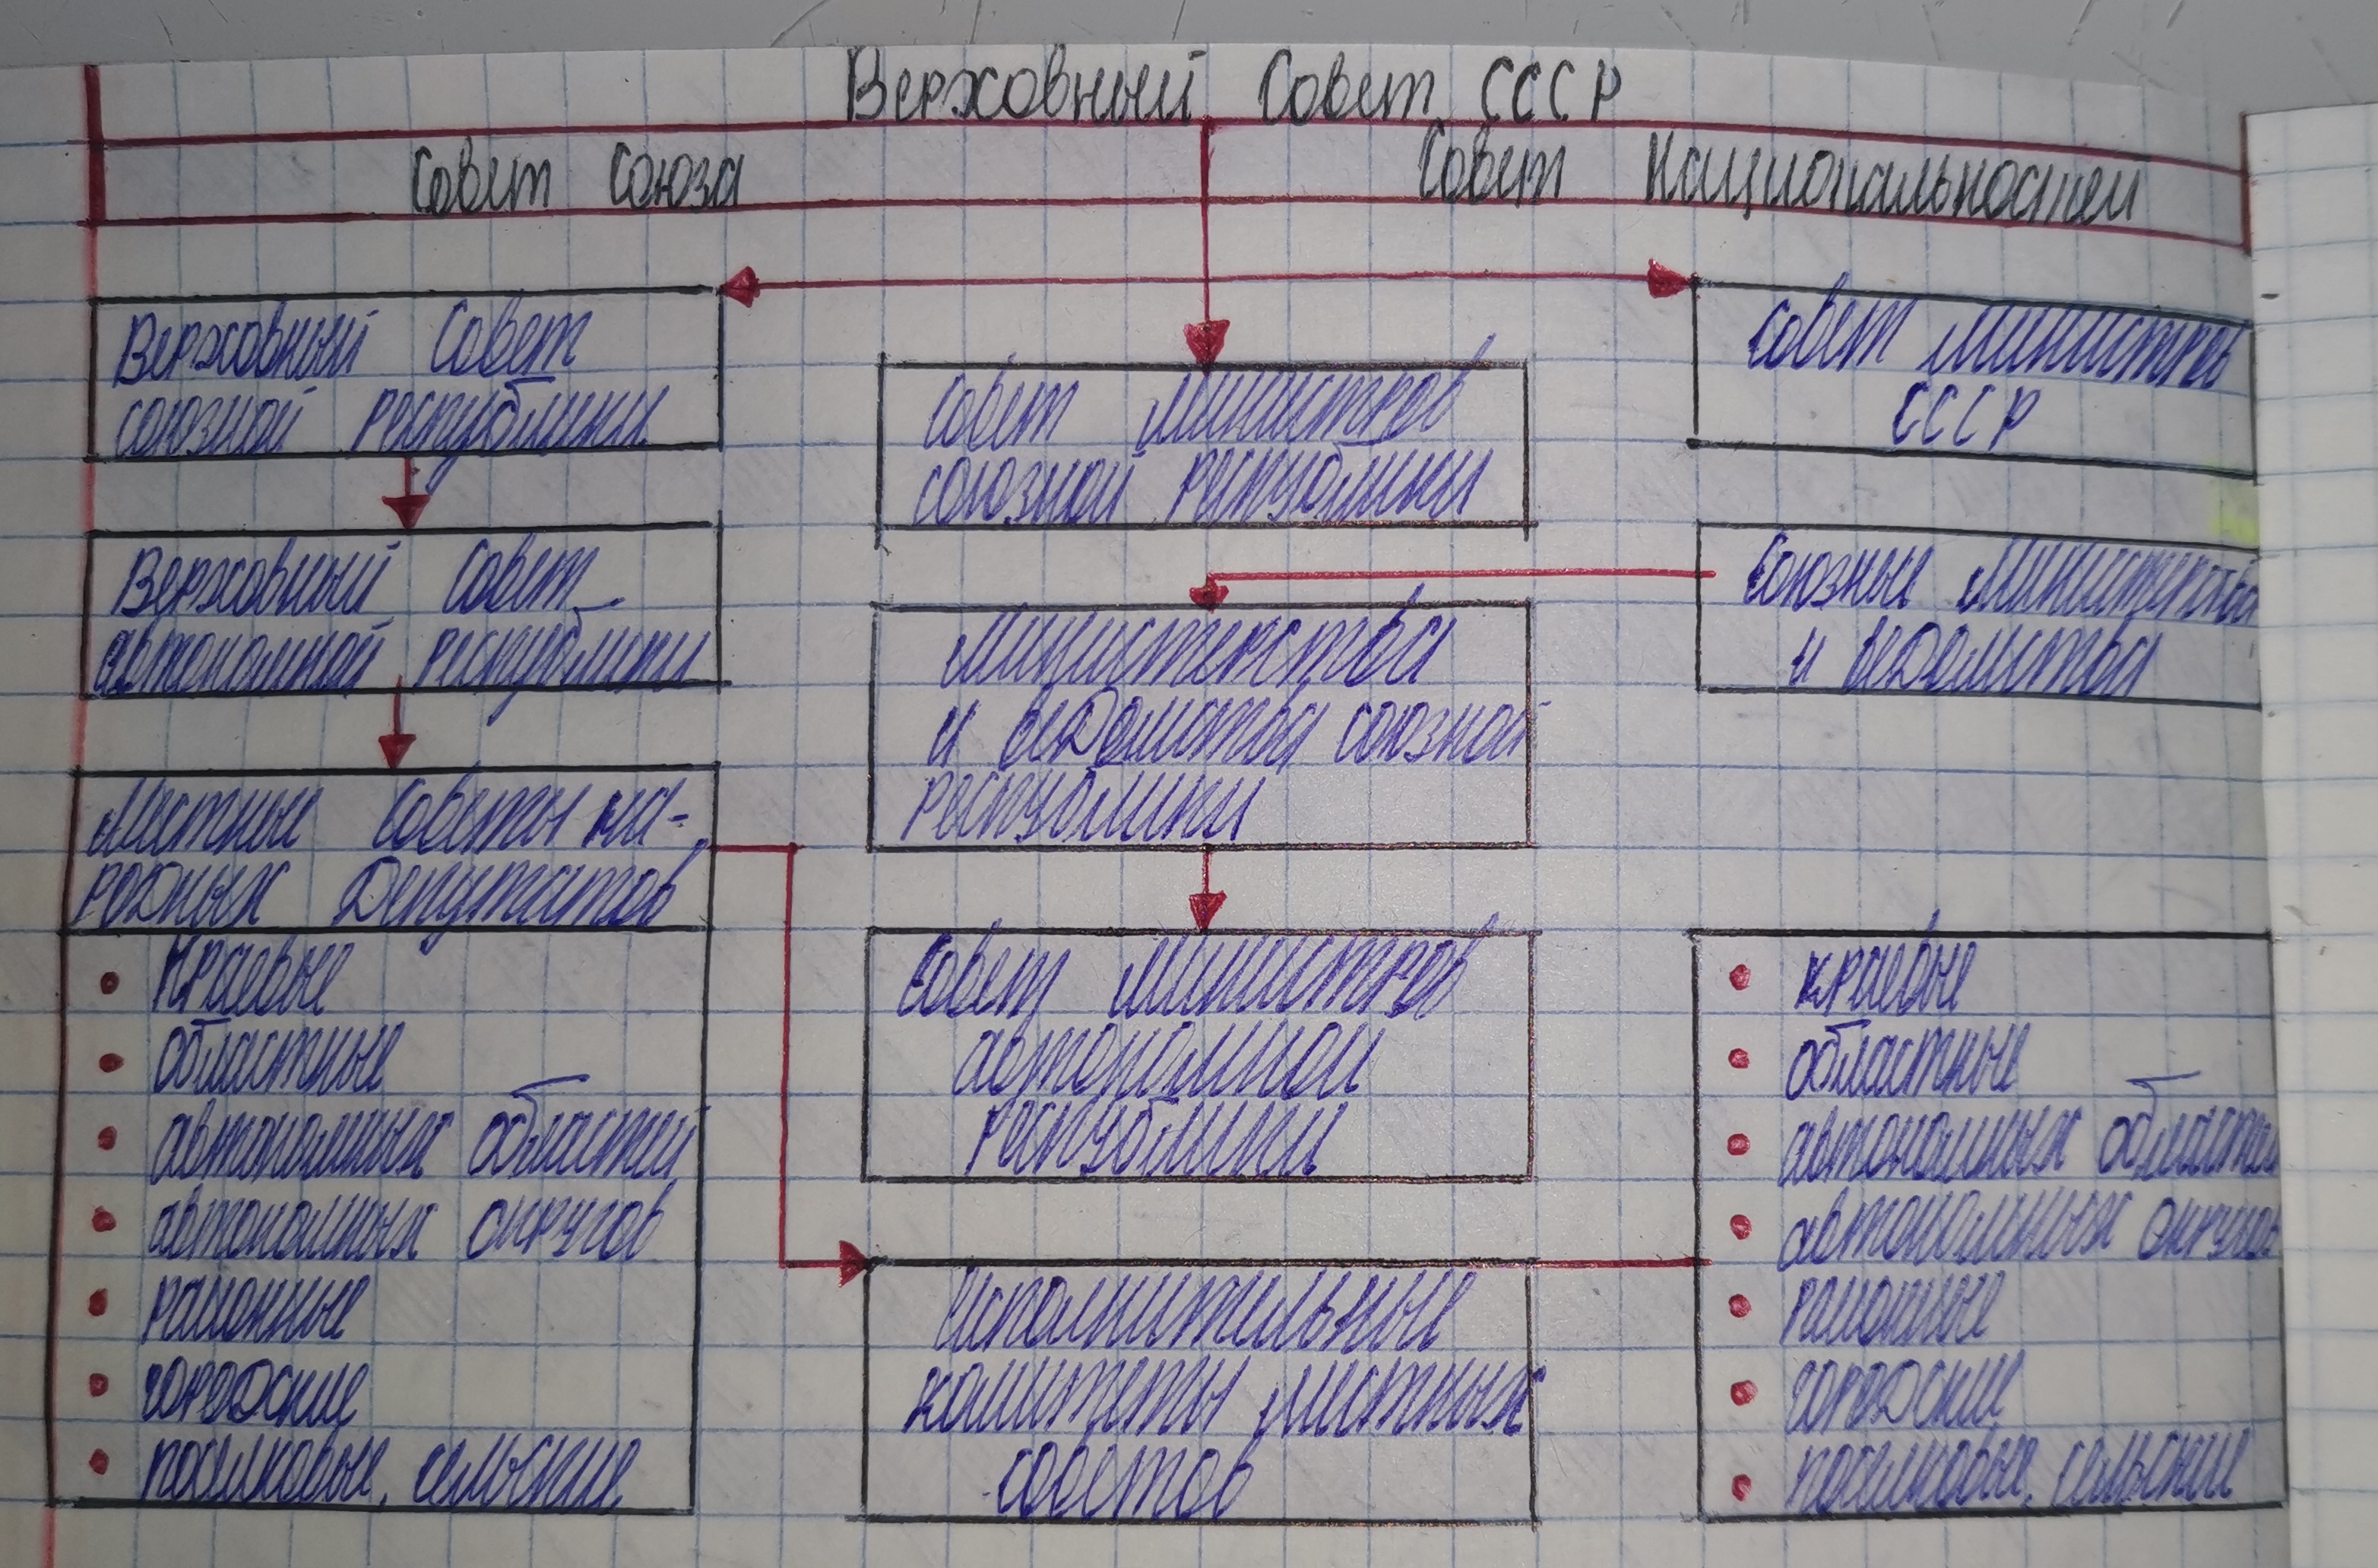 Верховный Совет СССР
Совет Союза
Совет Национальностей
Верховный Совет
союзной республики
Верховный Совет
автономной республики
Местные Советы на-
родных депутатов
Краевые
областные
автономных областей
автономных округов
районные
городские
поселковые, сельские
Совет Министров
союзной республики
Министерства
и ведомства союзной
республики
Совет Министров
автономной
республики
Исполнительные
комитеты местных
советов
Совет Министров
СССР
Союзные Министерства
и ведомства
краевые
областные
автономных областей
автономных округов
районные
городские
поселковые, сельские